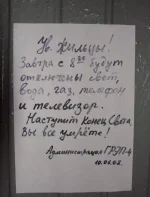 Ув. Жильцы!
Завтра с 8 30 будут
отключены свет,
вода, газ, телефон
и телевизор.
Наступит Конец Света
Вы все умрёте!
Администрация ГРЭП-4
10.02.02.